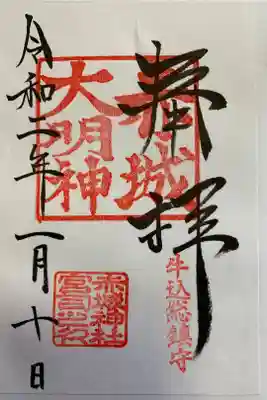 奉拝
赤城
大明神
牛込総鎮守
令和二年一月十日
赤城神社
宮司之印